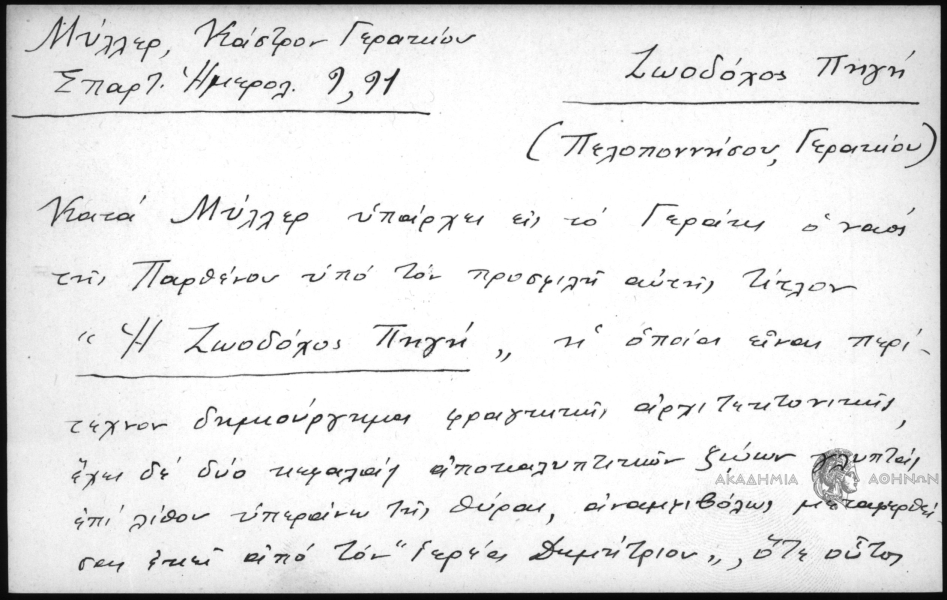 Μύλλερ, Κάστρον Γερακίου
Σπαρτ. Ἡμερολ. 9, 91
Ζωοδόχος Πηγή
(Πελοποννήσου, Γερακίου)
Κατά Μύλλερ ὑπάρχει εἰς τό Γεράκι ὁ ναός
τῆς Παρθένου ὑπό τόν προσφιλῆ αὐτῆς τίτλον
"Ἡ Ζωοδόχος Πηγή„ ἡ ὁποία εἶναι περί-
τεχνον δημιούργημα φραγκικῆς ἀρχιτεκτονικῆς,
ἔχει δέ δύο κεφαλάς ἀποκαλυπτικῶν ζώων γλυπτάς
ΑΚΑΔΗΜΙΑ ΑΘΗΝΩΝ
ἐπί λίθου ὑπεράνω τῆς θύρας, ἀναμφιβόλως μεταφερθεί
σας ἐκεῖ ἀπό τόν "Γερέα Δημήτριον„, ὅτε οὗτος